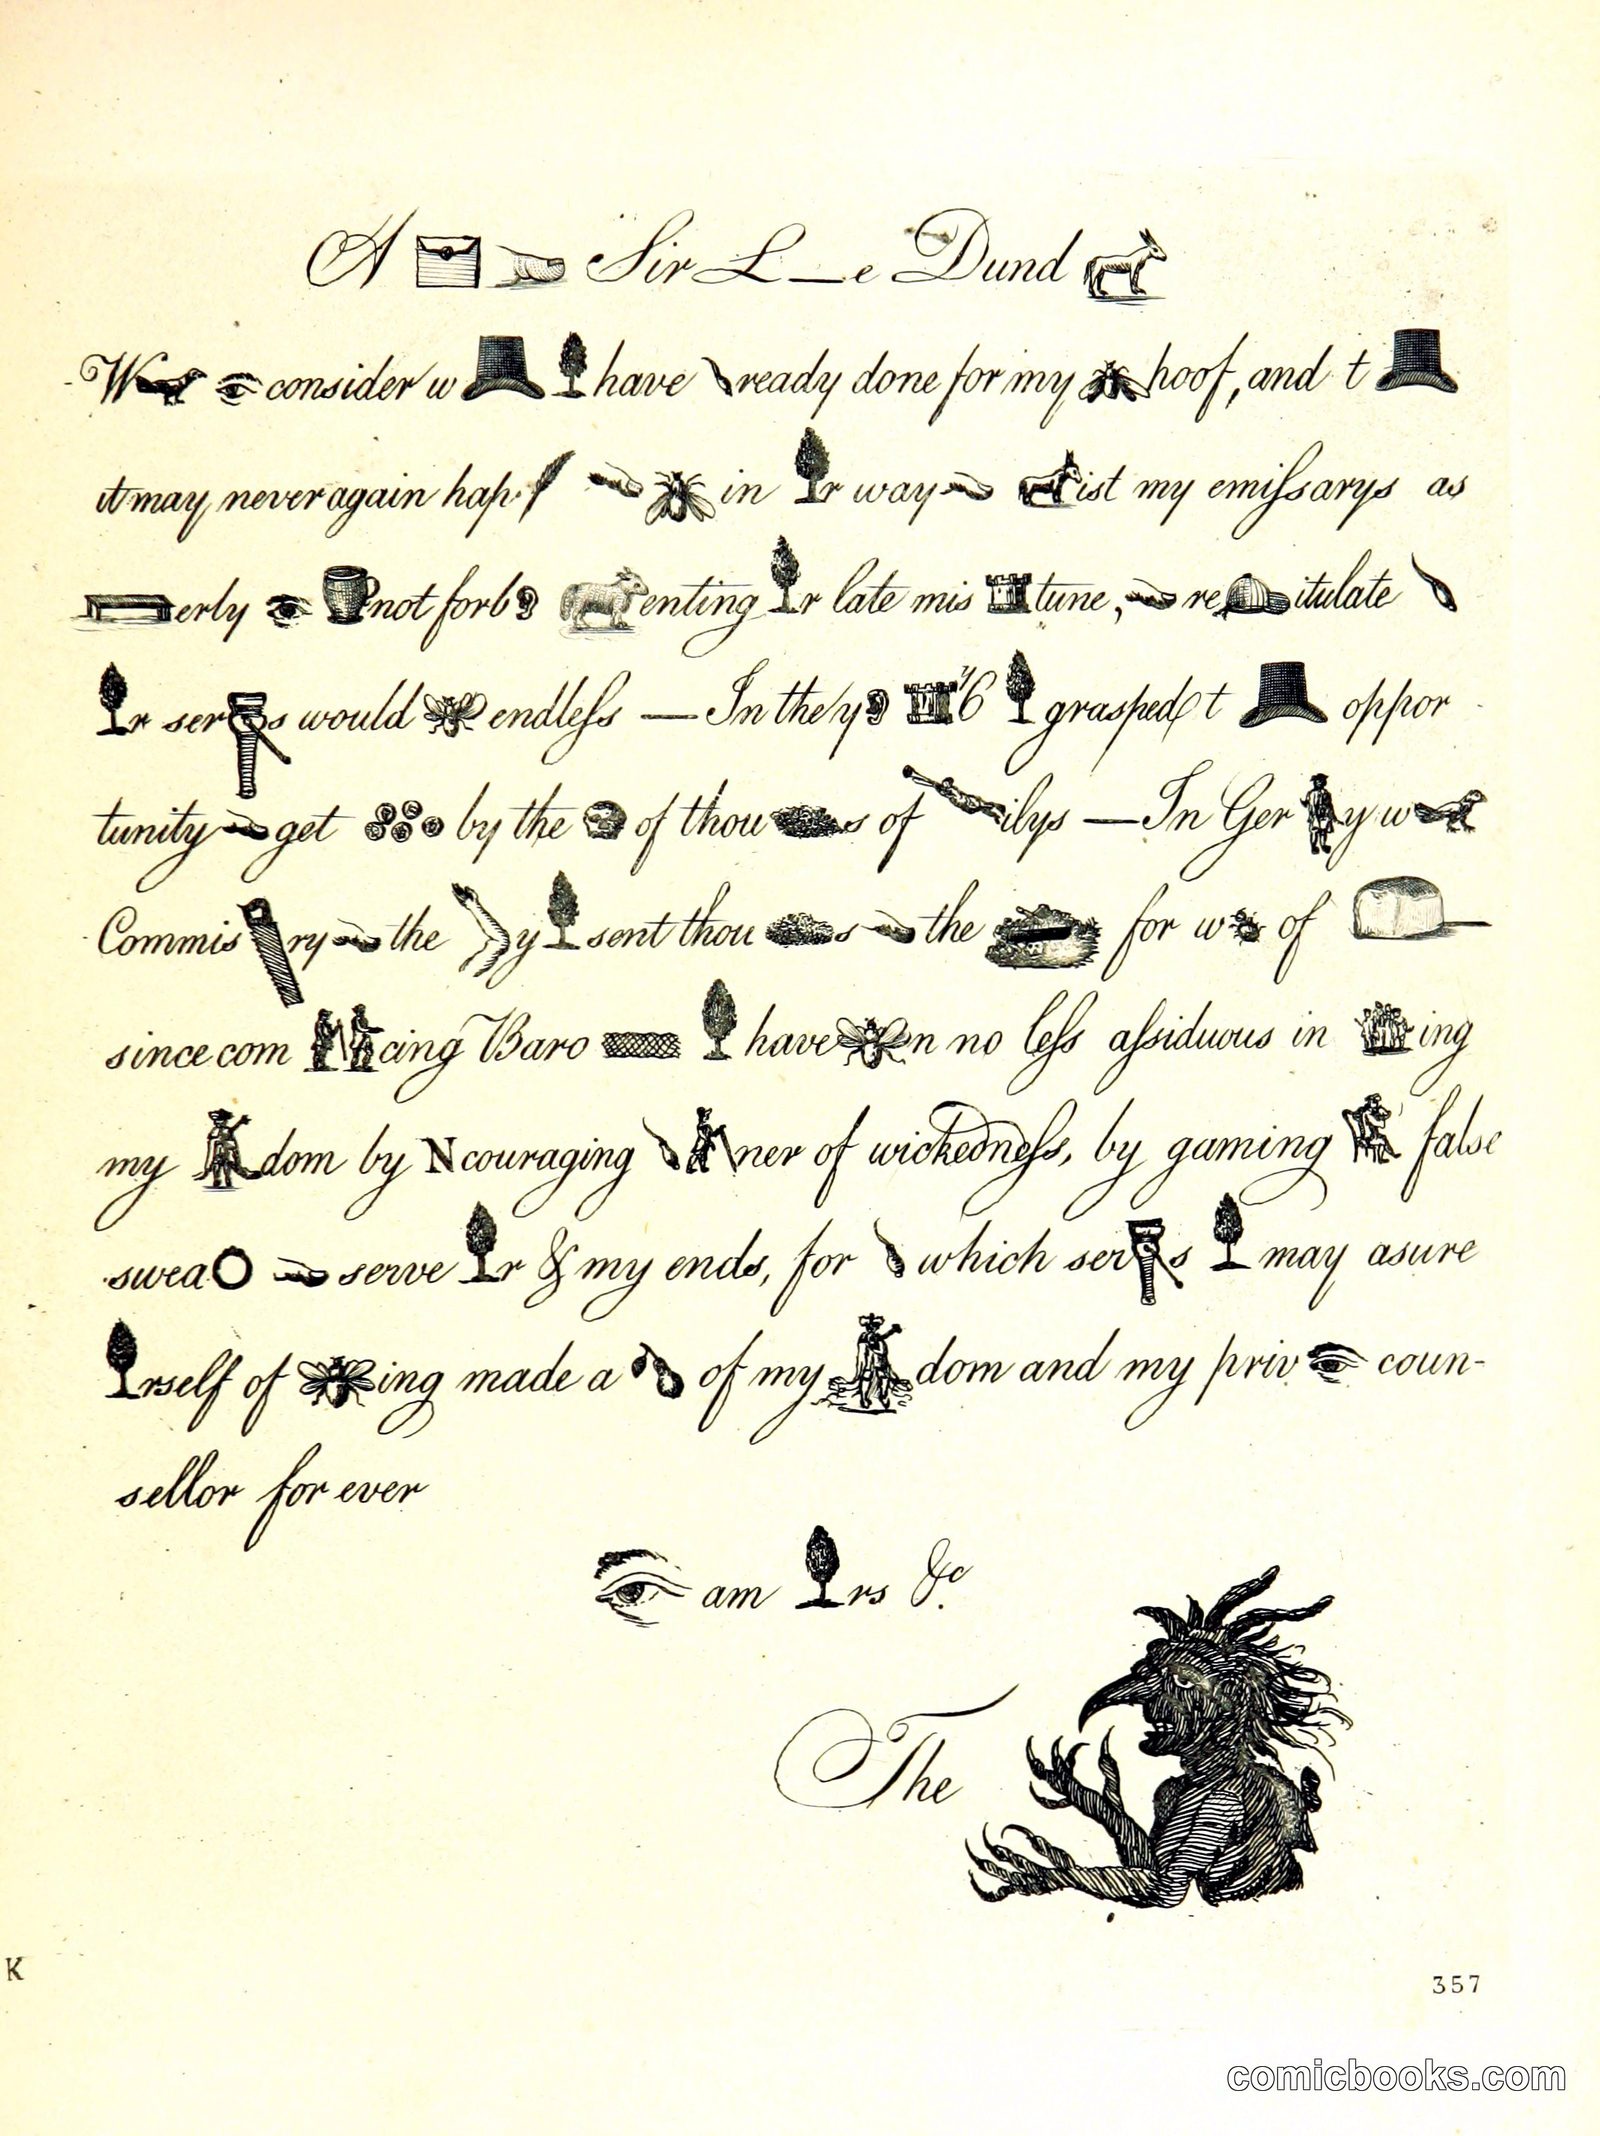 A Sir L—e Dund
W consider w have ready done for my hoof, and t
it may never again hap in r way ist my emissarys as
erly not forb enting r late mis tune, re itulate
r ser s would endless — In the y '6 grasped t oppor
tunity get by the of thou s of ilys — In Ger y w
Commis ry the y sent thou s the for w of
since com cing Baro have n no less assiduous in ing
my dom by Ncouraging ner of wickedness, by gaming false
swea serve r & my ends, for which ser s may asure
rself of ing made a of my dom and my priv coun-
sellor for ever
am rs &c.
The
K
357
comicbooks.com